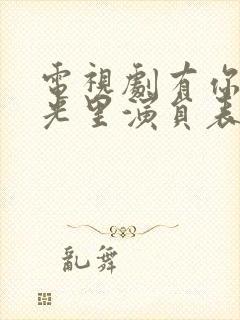 電視劇有你
光里演員表
亂舞